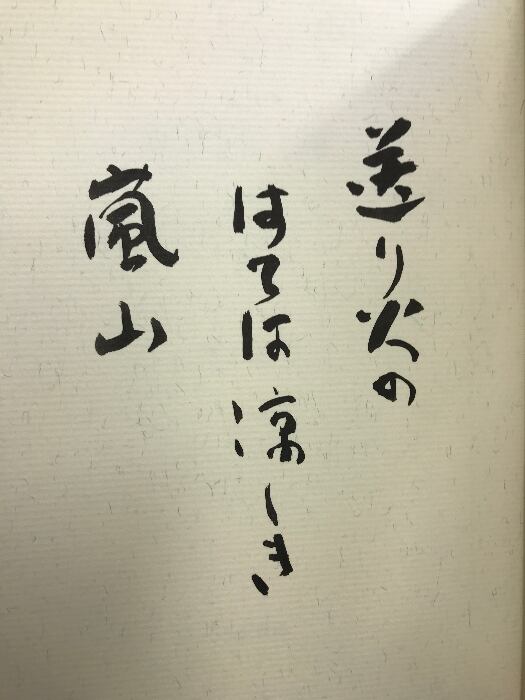 送り火の
はては涼しき
嵐山